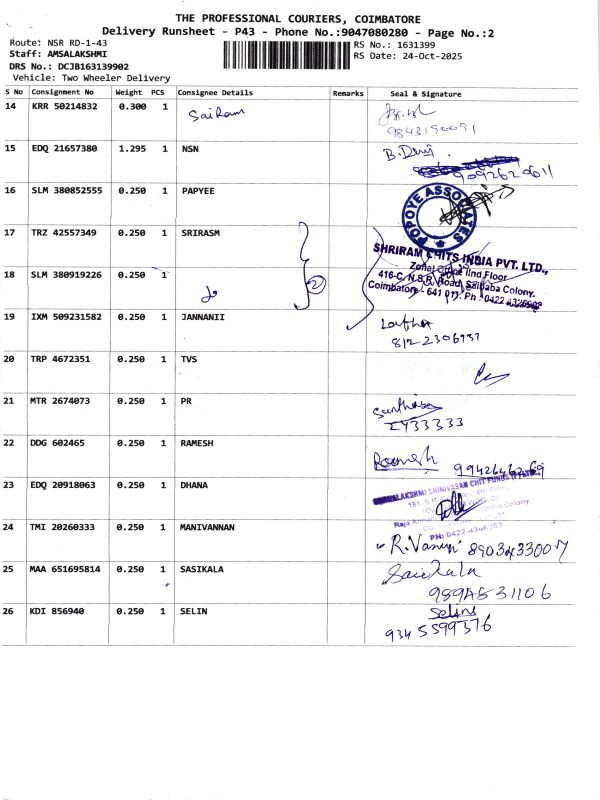 THE PROFESSIONAL COURIERS, COIMBATORE
Delivery Runsheet - P43 - Phone No.:9047080280 - Page No.:2
Route: NSR RD-1-43
Staff: AMSALAKSHMI
DRS No.: DCJB163139902
Vehicle: Two Wheeler Delivery
RS No.: 1631399
RS Date: 24-Oct-2025
S No Consignment No Weight PCS Consignee Details Remarks Seal & Signature
14 KRR 50214832 0.300 1 SaiRam
9843190091
15 EDQ 21657380 1.295 1 NSN B.Devi
16 SLM 380852555 0.250 1 PAPYEE
POPOYE ASSOCIATES
17 TRZ 42557349 0.250 1 SRIRASM
SHRIRAM CHITS INDIA PVT. LTD.,
Zonal Office IInd Floor
416-C, N.S.R. Road, Saibaba Colony,
Coimbatore - 641 011. Ph : 0422
18 SLM 380919226 0.250 1 do 2
19 IXM 509231582 0.250 1 JANNANII Latha
812 2306937
20 TRP 4672351 0.250 1 TVS
21 MTR 2674073 0.250 1 PR
2433333
22 DDG 602465 0.250 1 RAMESH Ramesh
23 EDQ 20918063 0.250 1 DHANA
SRINIVASAN CHIT FUNDS
Colony
PH: 0422-4346353
24 TMI 20260333 0.250 1 MANIVANNAN
25 MAA 651695814 0.250 1 SASIKALA Sasikala
26 KDI 856940 0.250 1 SELIN Selins
9345599376